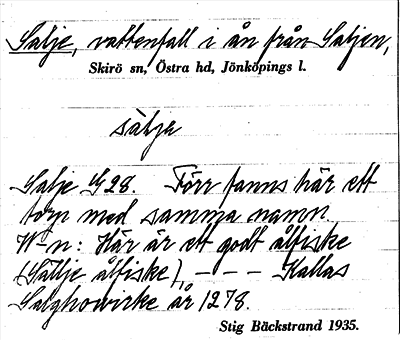 Salje, vattenfall i ån från Saljen,
Skirö sn, Östra hd, Jönköpings l.
sàlja
Salje G28. Förr fanns här ett
torp med samma namn.
W-n: Här är ett godt ålfiske
(Sällje ålfiske), - - - Kallas
Salghowirke år 1278.
Stig Bäckstrand 1935.